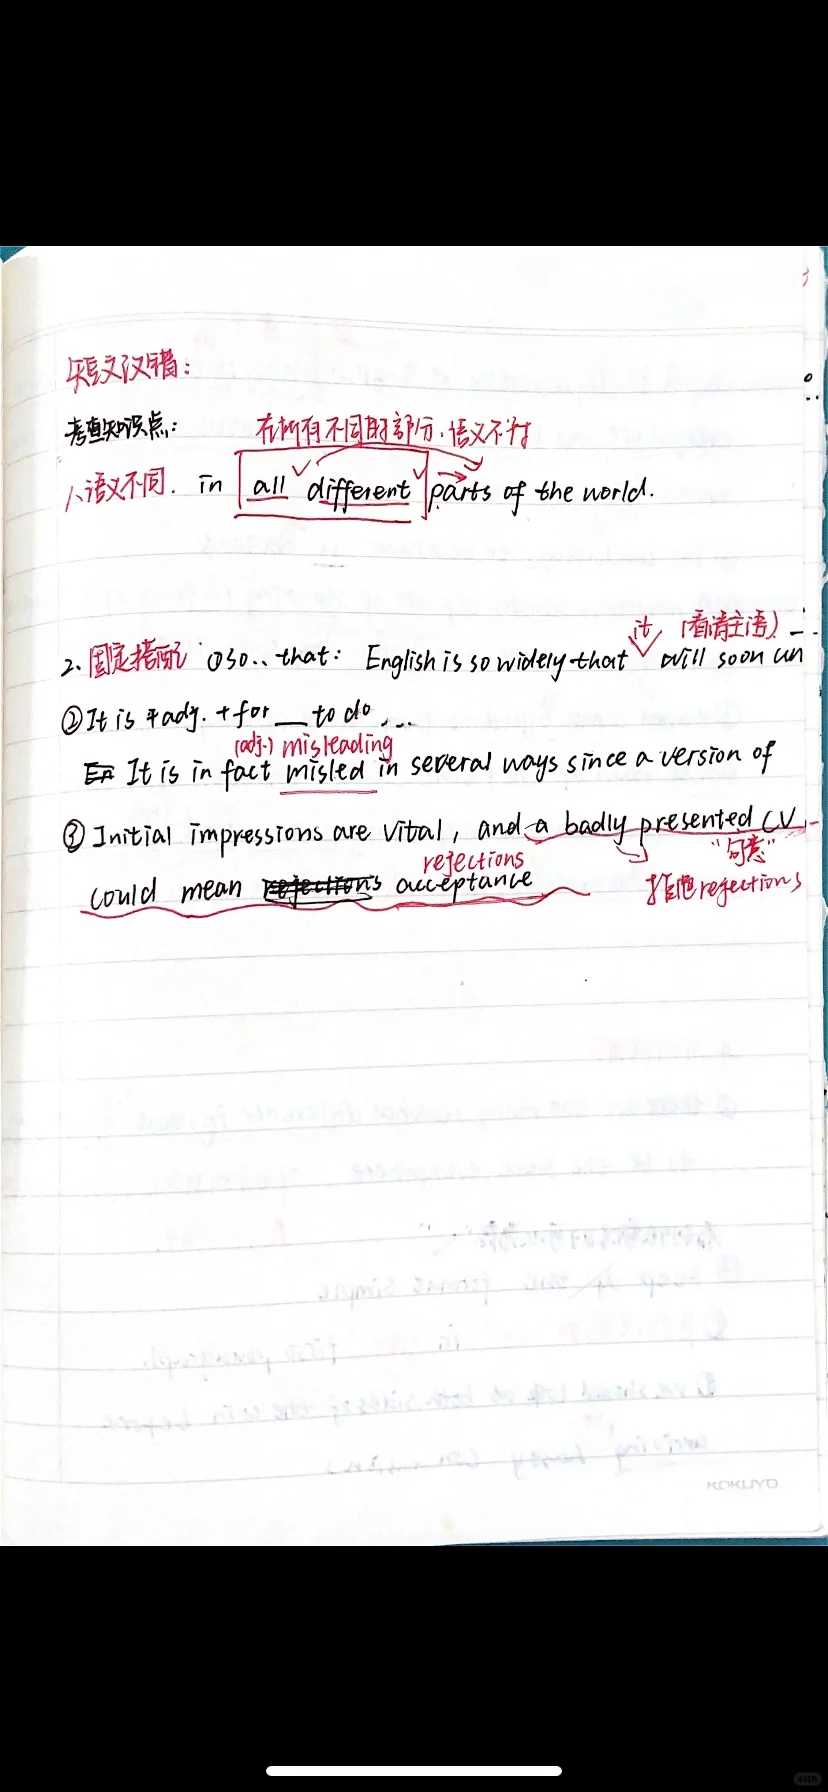 短文改错：
考查知识点：
在所有不同的部分，语义不对
1、语义不同. in all different parts of the world.
it （看清主语）
2. 固定搭配 ①so.. that: English is so widely that will soon un
②It is +adj. + for __ to do ...
(adj.) misleading
It is in fact misled in several ways since a version of
③ Initial impressions are vital, and a badly presented CV
rejections "句意"
could mean rejections acceptance
推出rejections
KOKUYO